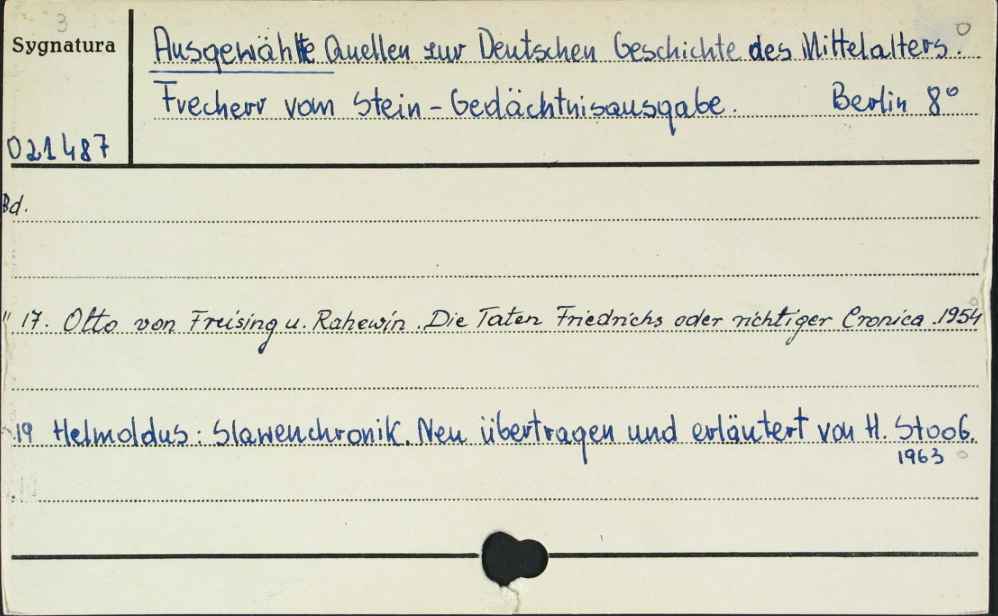 3
Sygnatura
Ausgewählte Quellen zur Deutschen Geschichte des Mittelalters.
Frecherr vom Stein - Gedächtnisausgabe. Berlin 8°
021487
Bd.
" 17. Otto von Freising u. Rahewin. Die Taten Friedrichs oder richtiger Cronica. 1954
19 Helmoldus: Slawenchronik. Neu übertragen und erläutert von H. Stoob.
1963